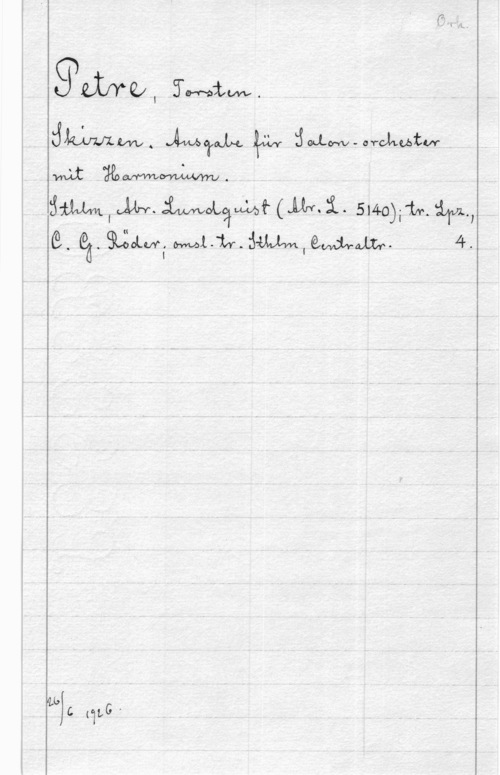 Ork.
Petre, Torsten.
Skizzen. Ausgabe für Salon-orchester
mit Harmonium.
Sthlm, Abr. Lundquist (Abr. L. 5140); tr. Lpz.,
C. G. Röder, omsl.-tr. Sthlm, Centraltr. 4.
26/6 1926.